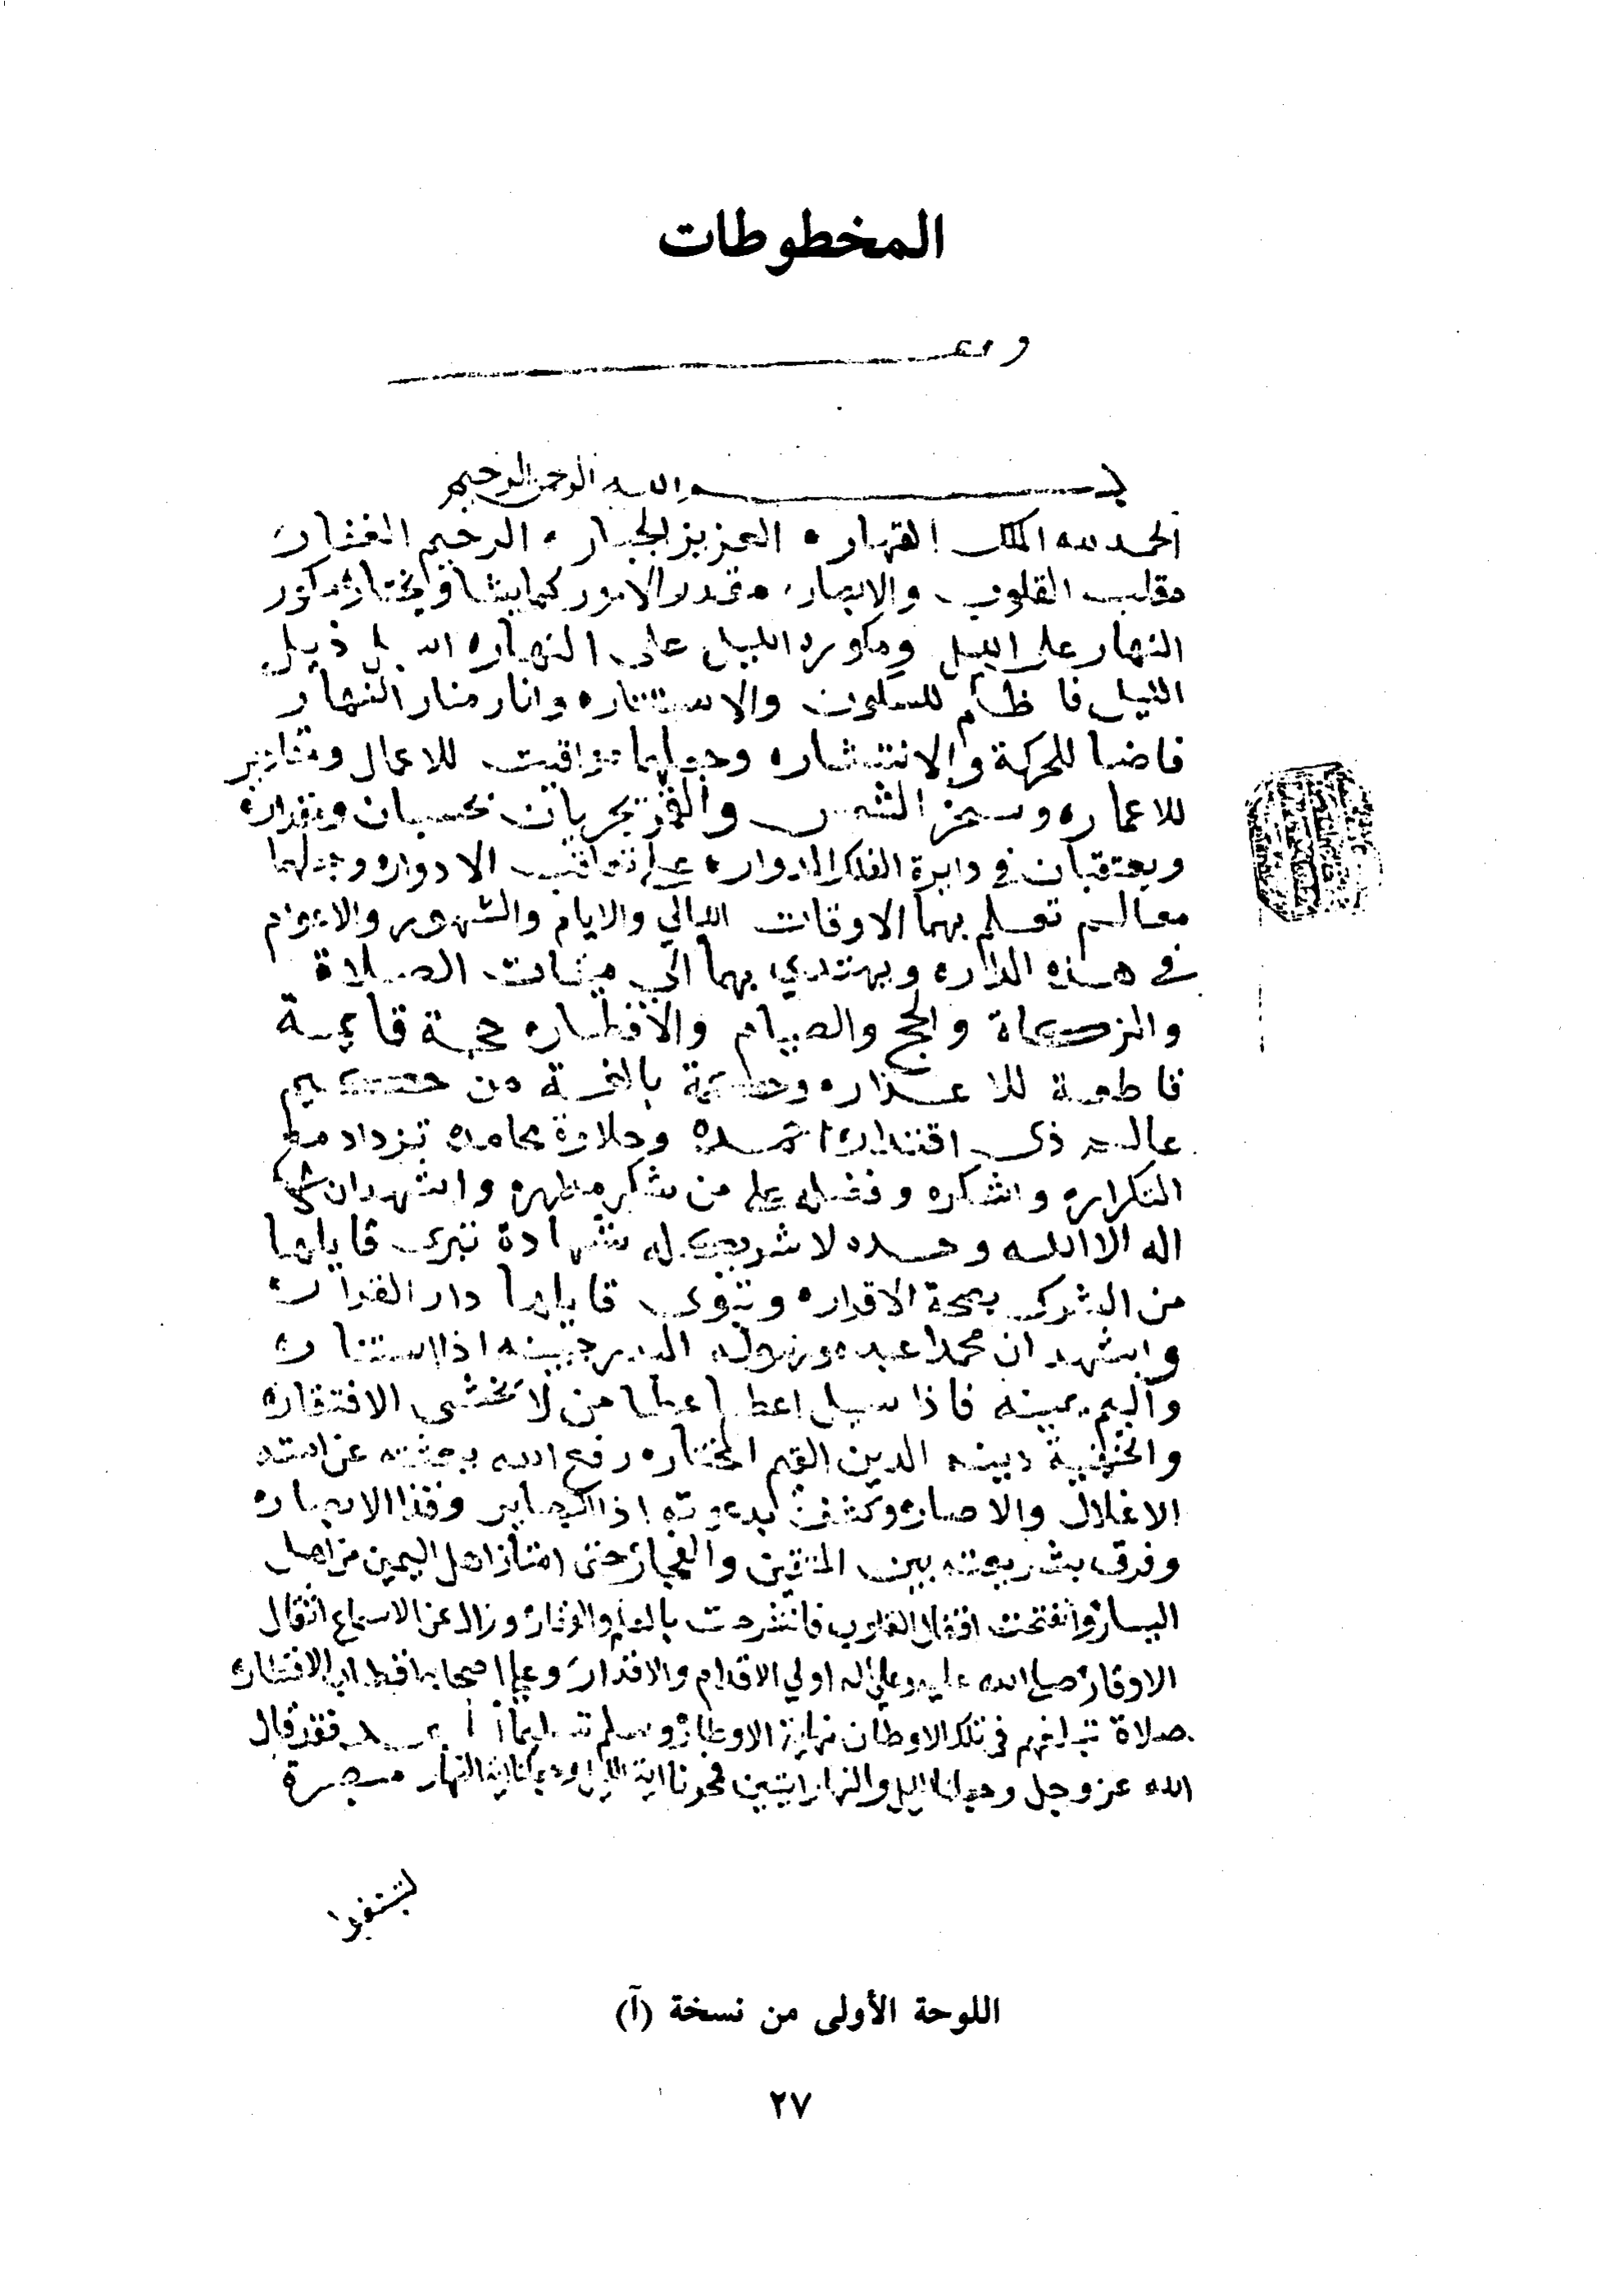 المخطوطات
بسم الله الرحمن الرحيم
الحمد لله الملك القهار ه العزيز الجبار ه الرحيم الغفار
مقلب القلوب والابصار مقدر الامور كما يشا ويختار مكور
النهار على الليل ومكوره الليل على النهار ه اسبل ذيل
الليل فاظلم للسكون والاستتار ه وانار منار النهار
فاضا للحركة والانتشار ه وجعلهما مواقيت للاعمال ومقادير
للاعمار ه وسخر الشمس والقمر يجريان بحسبان ومقدار ه
ويعتقبان في دايرة الفلك الدوار ه على تعاقب الادوار ه وجعلهما
معالم تعلم بهما الاوقات الليالي والايام والشهور والاعوام
في هذه الدار ه ويهتدي بهما الى ميقات الصلاة
والزكاة والحج والصيام والافطار ه حجة قايمة
قاطعة للاعذار ه وحكمة بالغة من حكيم
عالم ذى اقتدار احمده وحلاوة محامده تزداد مع
التكرار ه واشكره وفضله على من شكر مدرار ه واشهد ان لا
اله الا الله وحده لا شريك له شهادة تبرى قايلها
من الشرك بصحة الاقرار ه وتبوى قايلها دار القرار
واشهد ان محمدا عبده ورسوله البدر جبينه اذا استنار
واليم يمينه فاذا سيل اعطا عطا من لا يخشى الافتقار ه
والحنيفية دينه الدين القيم المختار ه رفع الله ببعثته عن امته
الاغلال والاصار وكشف بدعوته اذا البصاير وقذا الابصار ه
وفرق بشريعته بين المتقين والفجار حتى امتاز اهل اليمين من اهل
اليسار وانفتحت اقفال القلوب فانشرحت بالعلم والوقار وزال عن الاسماع اثقال
الاوقار صلى الله عليه وعلى اله اولي الاقدام والاقدار وعلى اصحابه اقطاب الاقطار ه
صلاة تبلغهم في تلك الاوطان نهاية الاوطار وسلم تسليما اما بعد فقد قال
الله عز وجل وجعلنا اليل والنهار ايتين فمحونا اية الليل وجعلنا اية النهار مبصرة
لتبتغوا
اللوحة الأولى من نسخة (آ)
٢٧